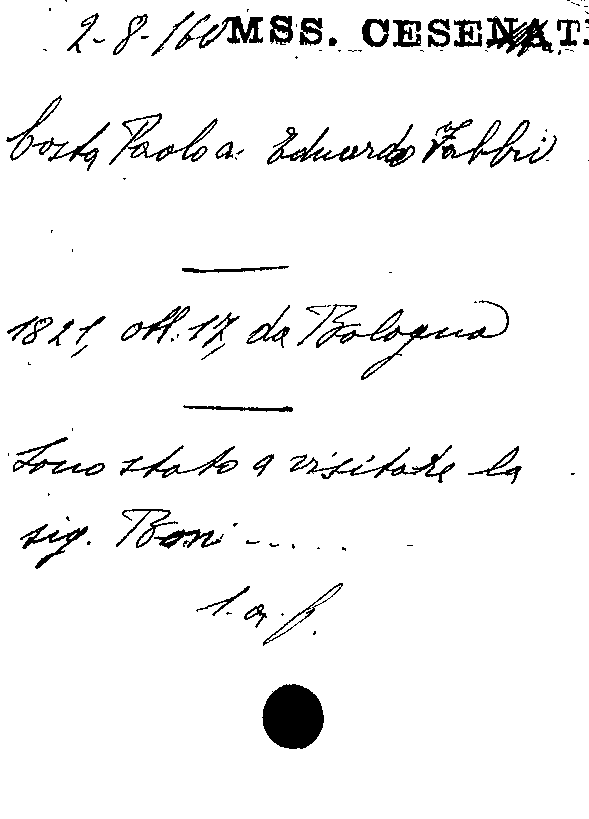 2-8-160 MSS. CESENAT.
Costa Paolo a Eduardo Fabbri
1821, ott. 17, da Bologna
Sono stato a visitare la
sig. Boni -....
l. a. f.